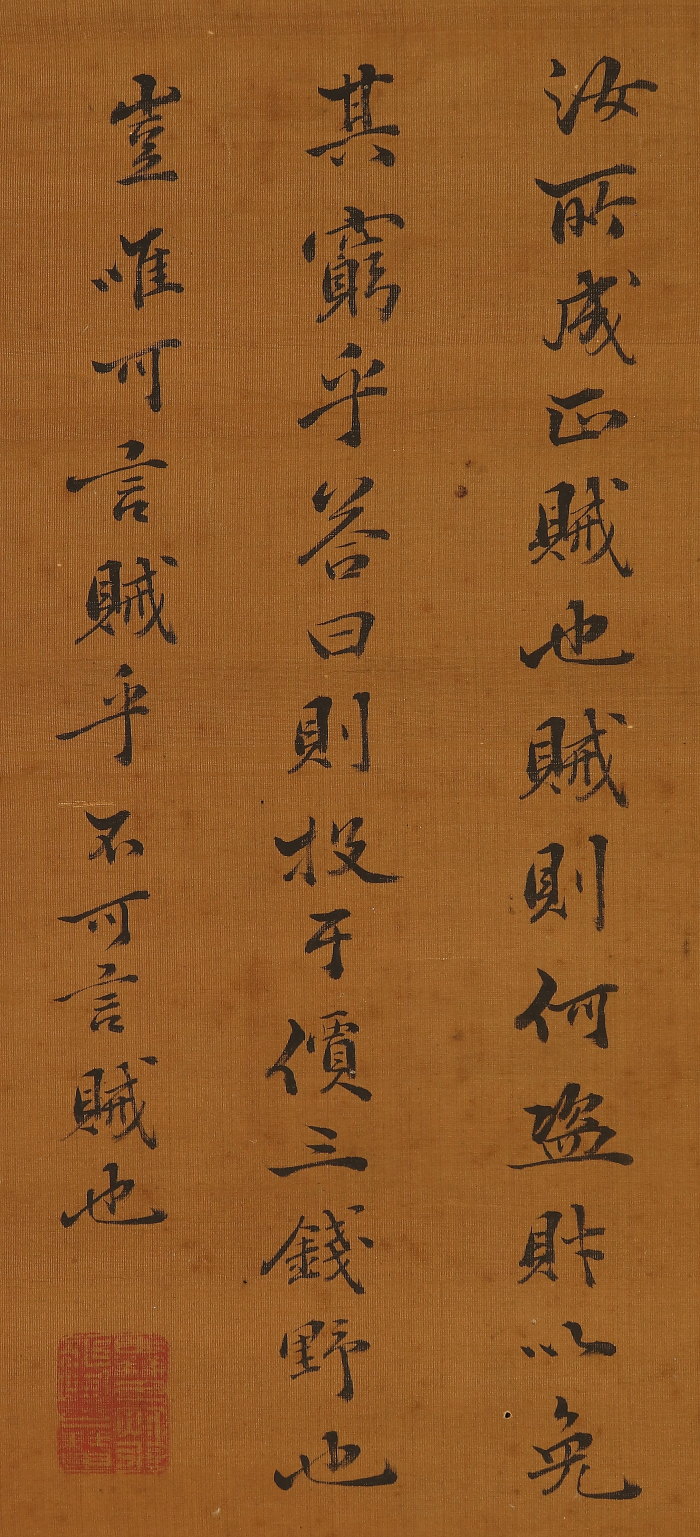 汝所成正賊也賊則何盜財以免
其窮乎答曰則投于價三錢野也
豈唯可言賊乎不可言賊也